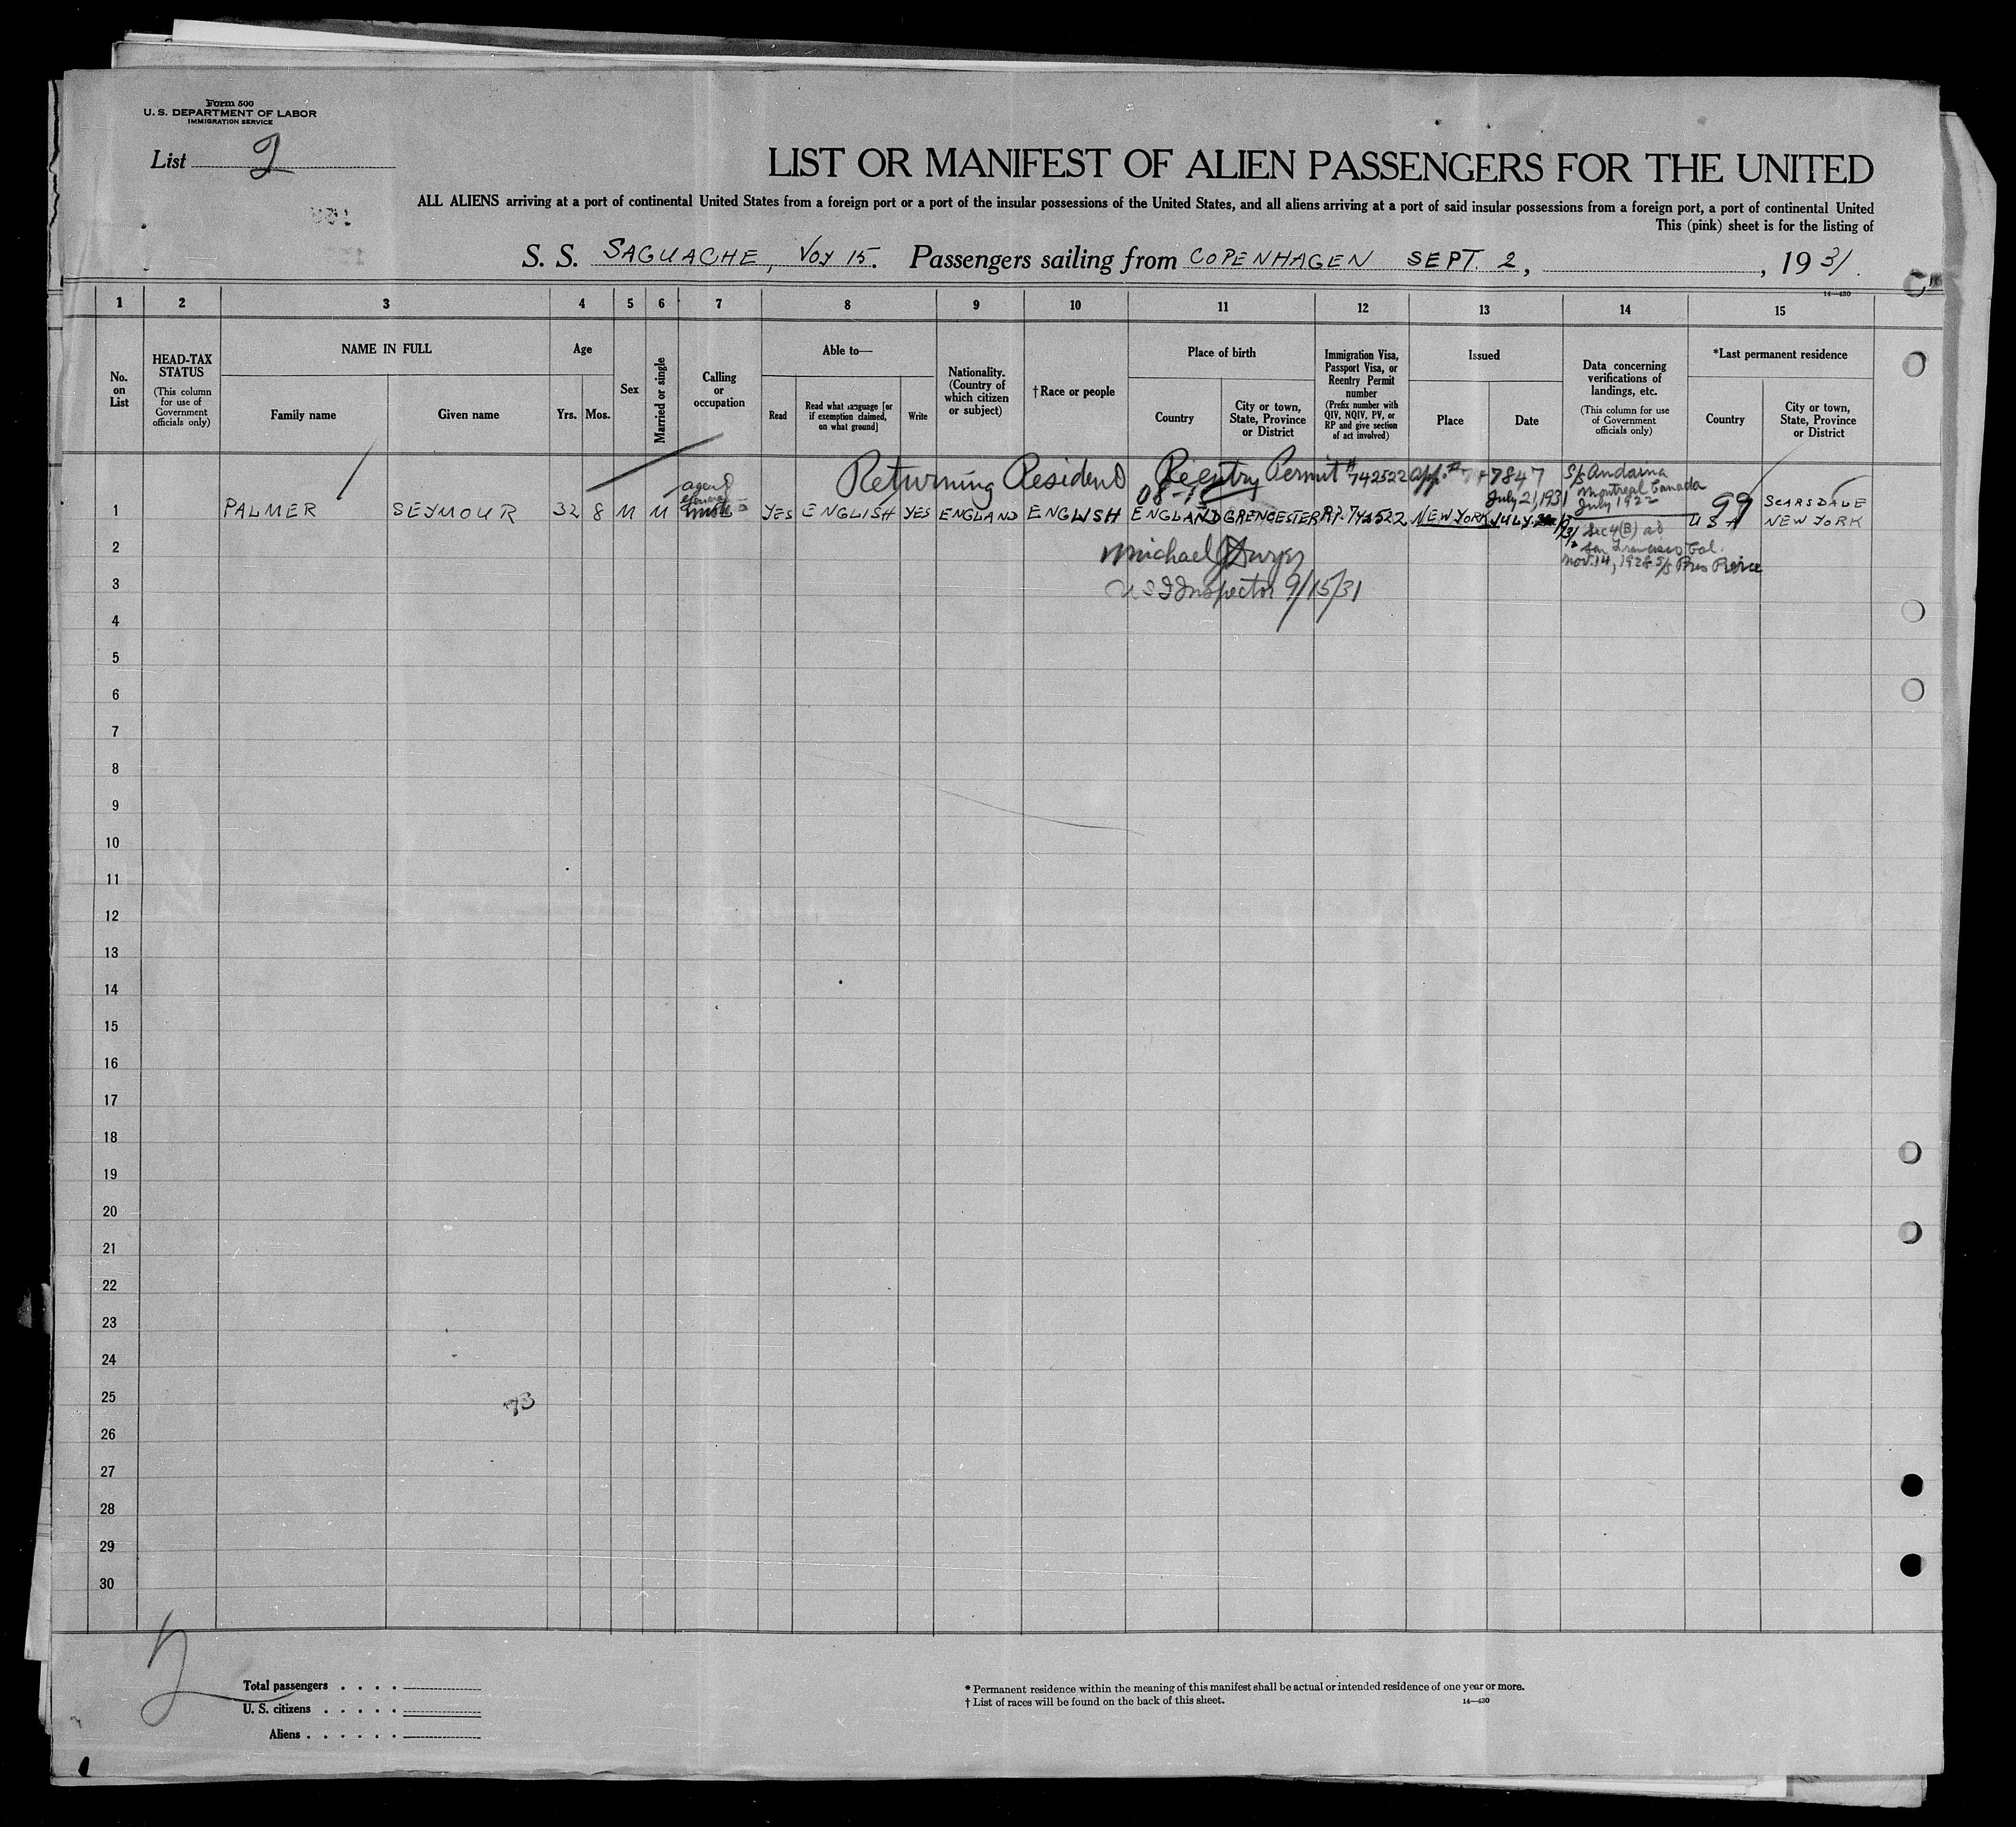 Form 500
U. S. DEPARTMENT OF LABOR
IMMIGRATION SERVICE
List 2
LIST OR MANIFEST OF ALIEN PASSENGERS FOR THE UNITED
ALL ALIENS arriving at a port of continental United States from a foreign port or a port of the insular possessions of the United States, and all aliens arriving at a port of said insular possessions from a foreign port, a port of continental United
This (pink) sheet is for the listing of
S. S. SAGUACHE, VOY 15. Passengers sailing from COPENHAGEN SEPT. 2, , 1931.
14—430
1 2 3 4 5 6 7 8 9 10 11 12 13 14 15
No. on List
HEAD-TAX STATUS
(This column for use of Government officials only)
NAME IN FULL
Family name Given name
Age
Yrs. Mos.
Sex
Married or single
Calling or occupation
Able to—
Read
Read what language [or if exemption claimed, on what ground]
Write
Nationality. (Country of which citizen or subject)
†Race or people
Place of birth
Country
City or town, State, Province or District
Immigration Visa, Passport Visa, or Reentry Permit number
(Prefix number with QIV, NQIV, PV, or RP and give section of act involved)
Issued
Place Date
Data concerning verifications of landings, etc.
(This column for use of Government officials only)
*Last permanent residence
Country
City or town, State, Province or District
Returning Resident Reentry Permit # 742522 app. # 7847
July 21, 1931
S/S Andania
Montreal Canada
July 1922
08-1
99
agent
1 PALMER SEYMOUR 32 8 M M YES ENGLISH YES ENGLAND ENGLISH ENGLAND R.P. 742522 NEW YORK JULY U S A SCARSDALE
NEW YORK
Sec 4(B) ad
San Francisco Cal.
Nov. 14, 1928 S/S Pres Pierce
2
Michael
3
U S I Inspector 9/15/31
4
5
6
7
8
9
10
11
12
13
14
15
16
17
18
19
20
21
22
23
24
25
26
27
28
29
30
2
Total passengers . . . .
U. S. citizens . . . . .
Aliens . . . . . .
* Permanent residence within the meaning of this manifest shall be actual or intended residence of one year or more.
† List of races will be found on the back of this sheet.
14—430